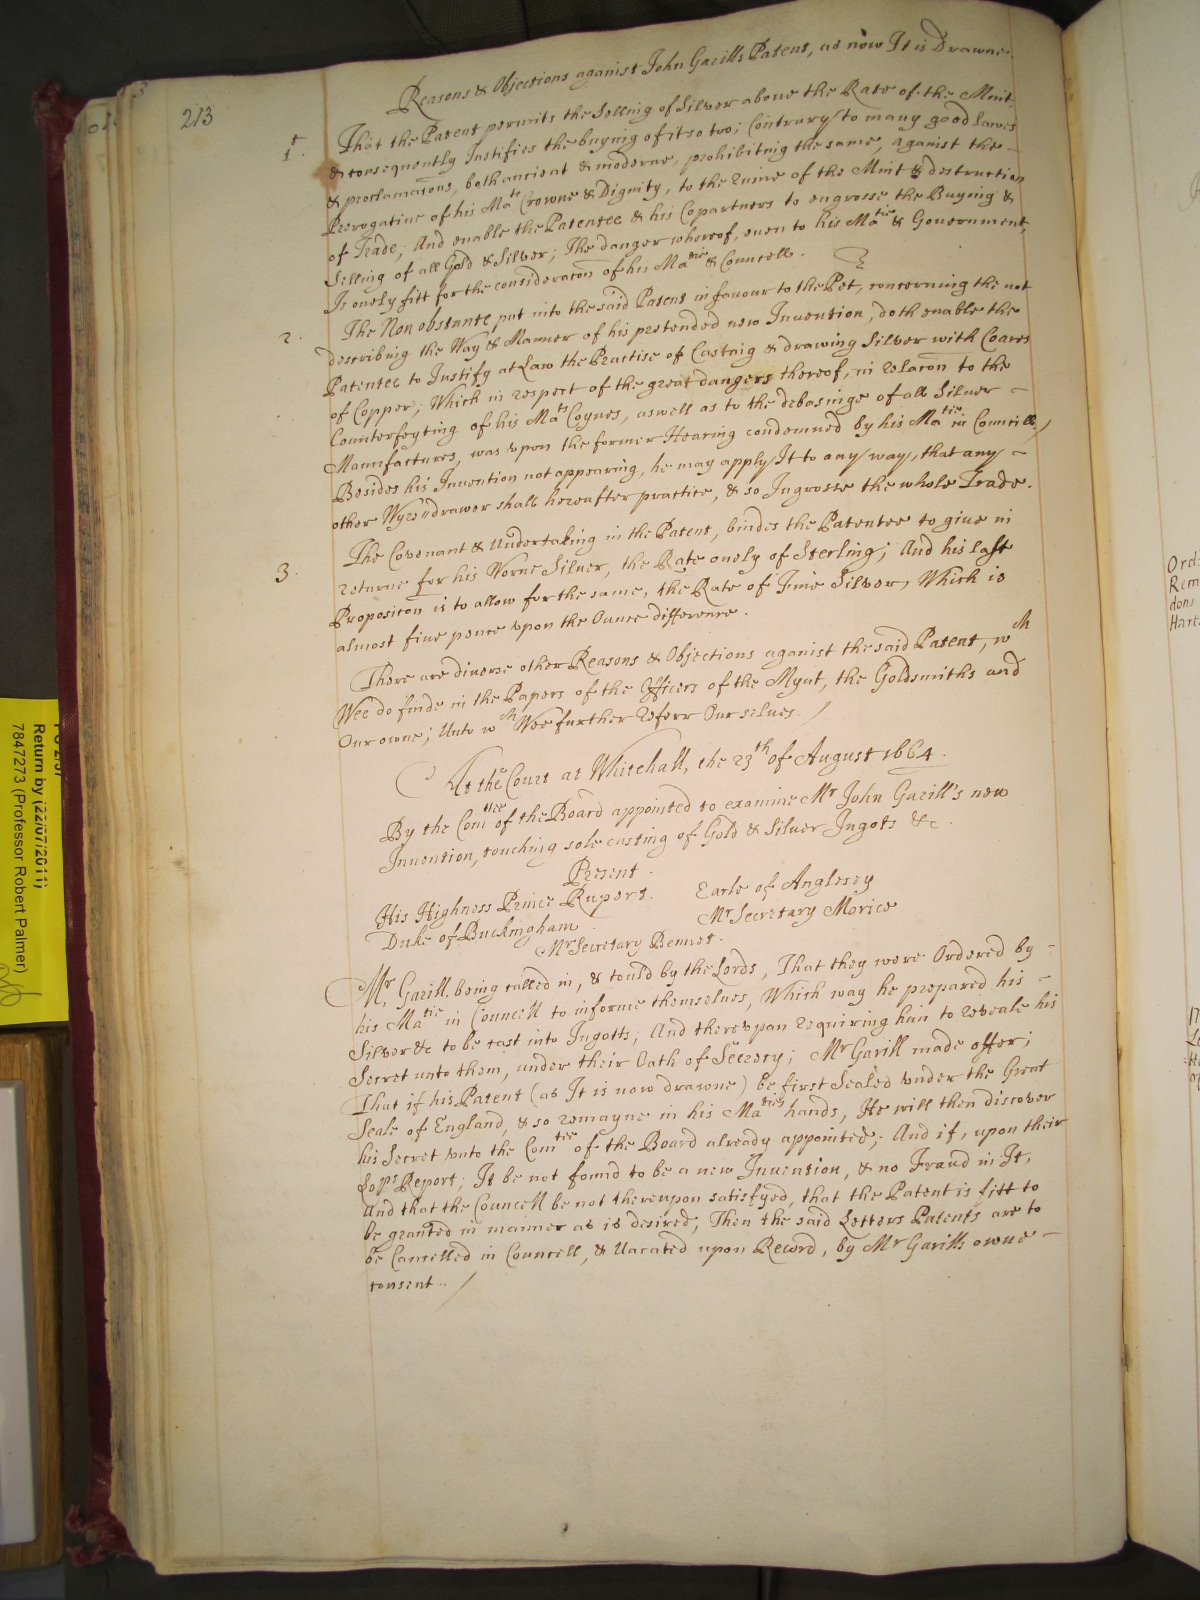 213
Reasons & Objections against John Garills Patent, as now It is Drawne.
1t. That the Patent permits the Selling of Silver above the Rate of the Mint,
& consequently Justifies the buying of it so too; Contrary to many good Lawes
& proclamacons, both ancient & moderne, prohibiting the same, against the
Prerogative of his Mats Crowne & Dignity, to the ruine of the Mint & destruction
of Trade, And enable the Patentee & his Copartners to engrosse the Buying &
Selling of all Gold & Silver; The danger whereof, even to his Matie & Government,
Is onely fitt for the consideracon of his Matie & Councell.
2. The Non obstante put into the said Patent in favour to the Pet, concerning the not
describing the Way & Manner of his pretended new Invention, doth enable the
Patentee to Justify at Law the Practise of Casting & drawing Silver with Coares
of Copper; Which in respect of the great dangers thereof, in relacon to the
Counterfeyting of his Mats Coynes, aswell as to the debasinge of all Silver
Manufactures, was upon the former Hearing condemned by his Matie in Councill,
Besides his Invention not appearing, he may apply It to any way, that any
other Wyre=drawer shall hereafter practice, & so Ingrosse the whole Trade.
3. The Covenant & Undertaking in the Patent, bindes the Patentee to give in
returne for his Worne Silver, the Rate onely of Sterling; And his last
Propositon is to allow for the same, the Rate of Fine Silver, Which is
almost five pence upon the Ounce difference.
There are diverse other Reasons & Objections against the said Patent, wch
Wee do finde in the Papers of the Officers of the Mynt, the Goldsmiths and
Our owne; Unto wch Wee further referr Our selves.
At the Court at Whitehall, the 23th of August 1664.
By the Comttee of the Board appointed to examine Mr John Garill's new
Invention, touching sole casting of Gold & Silver Ingots &c.
Present.
His Highness Prince Rupert. Earle of Anglesey
Duke of Buckingham Mr Secretary Morice
Mr Secretary Bennet.
Mr. Garill being called in, & tould by the Lords, That they were Ordered by
his Matie in Councell to informe themselves, Which way he prepared his
Silver &c to be cast into Ingotts; And thereupan requiring him to reveale his
Secret unto them, under their Oath of Secresy; Mr Garill made offer;
That if his Patent (as It is now drawne) be first Sealed under the Great
Seale of England, & so remayne in his Maties hands, He will then discover
his Secret unto the Comtee of the Board already appointed; And if, upon their
Lopps Report; It be not found to be a new Invention, & no Fraud in It,
And that the Councell be not thereupon satisfyed, that the Patent is fitt to
be granted in manner as is desired; Then the said Letters Patents are to
be Cancelled in Councell, & Vacated upon Record, by Mr Garills owne
consent.
Return by (22/07/2011)
7847273 (Professor Robert Palmer)